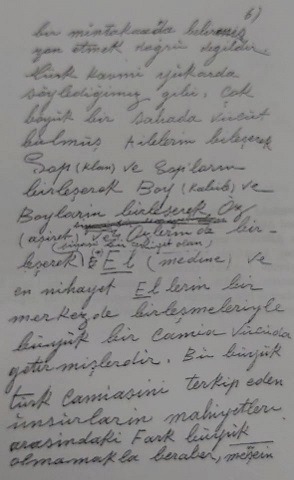 6)
bir mıntakaada belirmiş
yan etmek doğru değildir.
türk kavmi yukarda
söylediğimiz gibi, çok
böyük bir sahada vücut
bulmuş Ailelerin birleşerek
Sop (klan) ve Sop'ların
birleşerek Boy (kabile) ve
Boyların birleşerek Öz
(aşiret) ve Özlerin de bir-
(siyasi bir olan)
leşerek El (medine) ve
en nihayet Ellerin bir
merkezde birleşmeleriyle
büyük bir camia vücuda
getirmişlerdir. Bu büyük
türk camiasını terkip eden
unsurların mahiyetleri
arasındaki Fark büyük
olmamakla beraber,